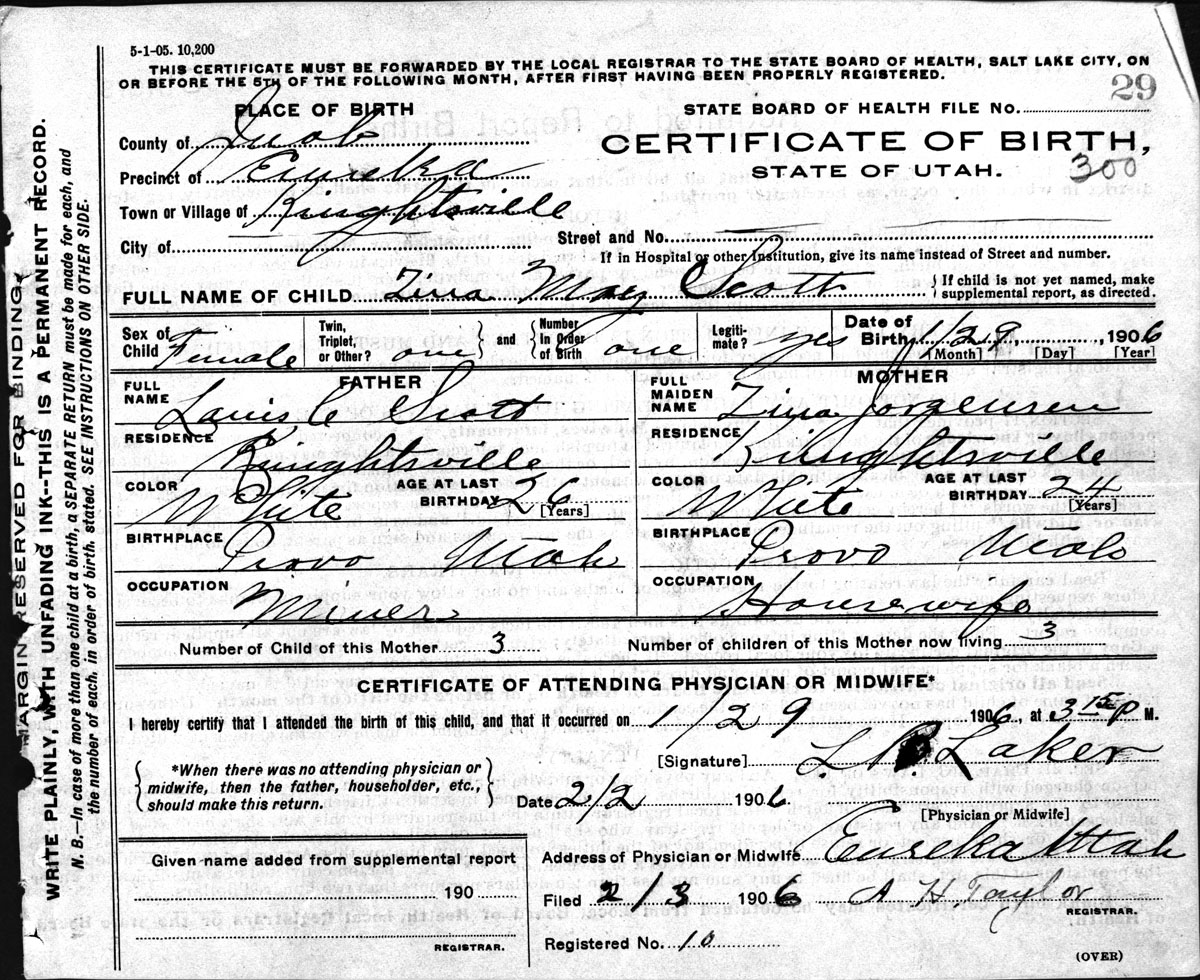 5-1-05. 10,200
THIS CERTIFICATE MUST BE FORWARDED BY THE LOCAL REGISTRAR TO THE STATE BOARD OF HEALTH, SALT LAKE CITY, ON
OR BEFORE THE 5TH OF THE FOLLOWING MONTH, AFTER FIRST HAVING BEEN PROPERLY REGISTERED.
29
PLACE OF BIRTH
STATE BOARD OF HEALTH FILE NO.
County of Juab
CERTIFICATE OF BIRTH,
Precinct of Eureka
STATE OF UTAH.
300
Town or Village of Knightsville
City of
Street and No.
If in Hospital or other Institution, give its name instead of Street and number.
FULL NAME OF CHILD Zina May Scott
If child is not yet named, make
supplemental report, as directed.
Sex of
Child Female
Twin,
Triplet,
or Other? one
and
Number
In Order
of Birth one
Legiti-
mate? yes
Date of
Birth 1/29, 1906
[Month] [Day] [Year]
FATHER
FULL
NAME Louis C Scott
RESIDENCE
Knightsville
COLOR
White
AGE AT LAST
BIRTHDAY 26
[Years]
BIRTHPLACE
Provo Utah
OCCUPATION
Miner
MOTHER
FULL
MAIDEN
NAME Zina Jorgensen
RESIDENCE
Knightsville
COLOR
White
AGE AT LAST
BIRTHDAY 24
[Years]
BIRTHPLACE
Provo Utah
OCCUPATION
Housewife
Number of Child of this Mother 3
Number of children of this Mother now living 3
CERTIFICATE OF ATTENDING PHYSICIAN OR MIDWIFE*
I hereby certify that I attended the birth of this child, and that it occurred on 1/29 1906, at 3 15 P M.
*When there was no attending physician or
midwife, then the father, householder, etc.,
should make this return.
[Signature] Laker
Date 2/2 1906
[Physician or Midwife]
Given name added from supplemental report
190
REGISTRAR.
Address of Physician or Midwife Eureka Utah
Filed 2/3 1906 A H Taylor
REGISTRAR.
Registered No. 10
(OVER)
MARGIN RESERVED FOR BINDING.
WRITE PLAINLY, WITH UNFADING INK--THIS IS A PERMANENT RECORD.
N. B.—In case of more than one child at a birth, a SEPARATE RETURN must be made for each, and
the number of each, in order of birth, stated. SEE INSTRUCTIONS ON OTHER SIDE.